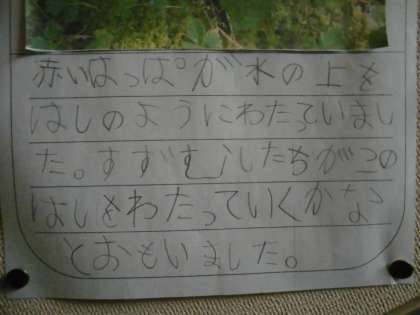 赤いはっぱが水の上を
はしのようにわたっていまし
た。すずむしたちがこの
はしをわたっていくかな
とおもいました。